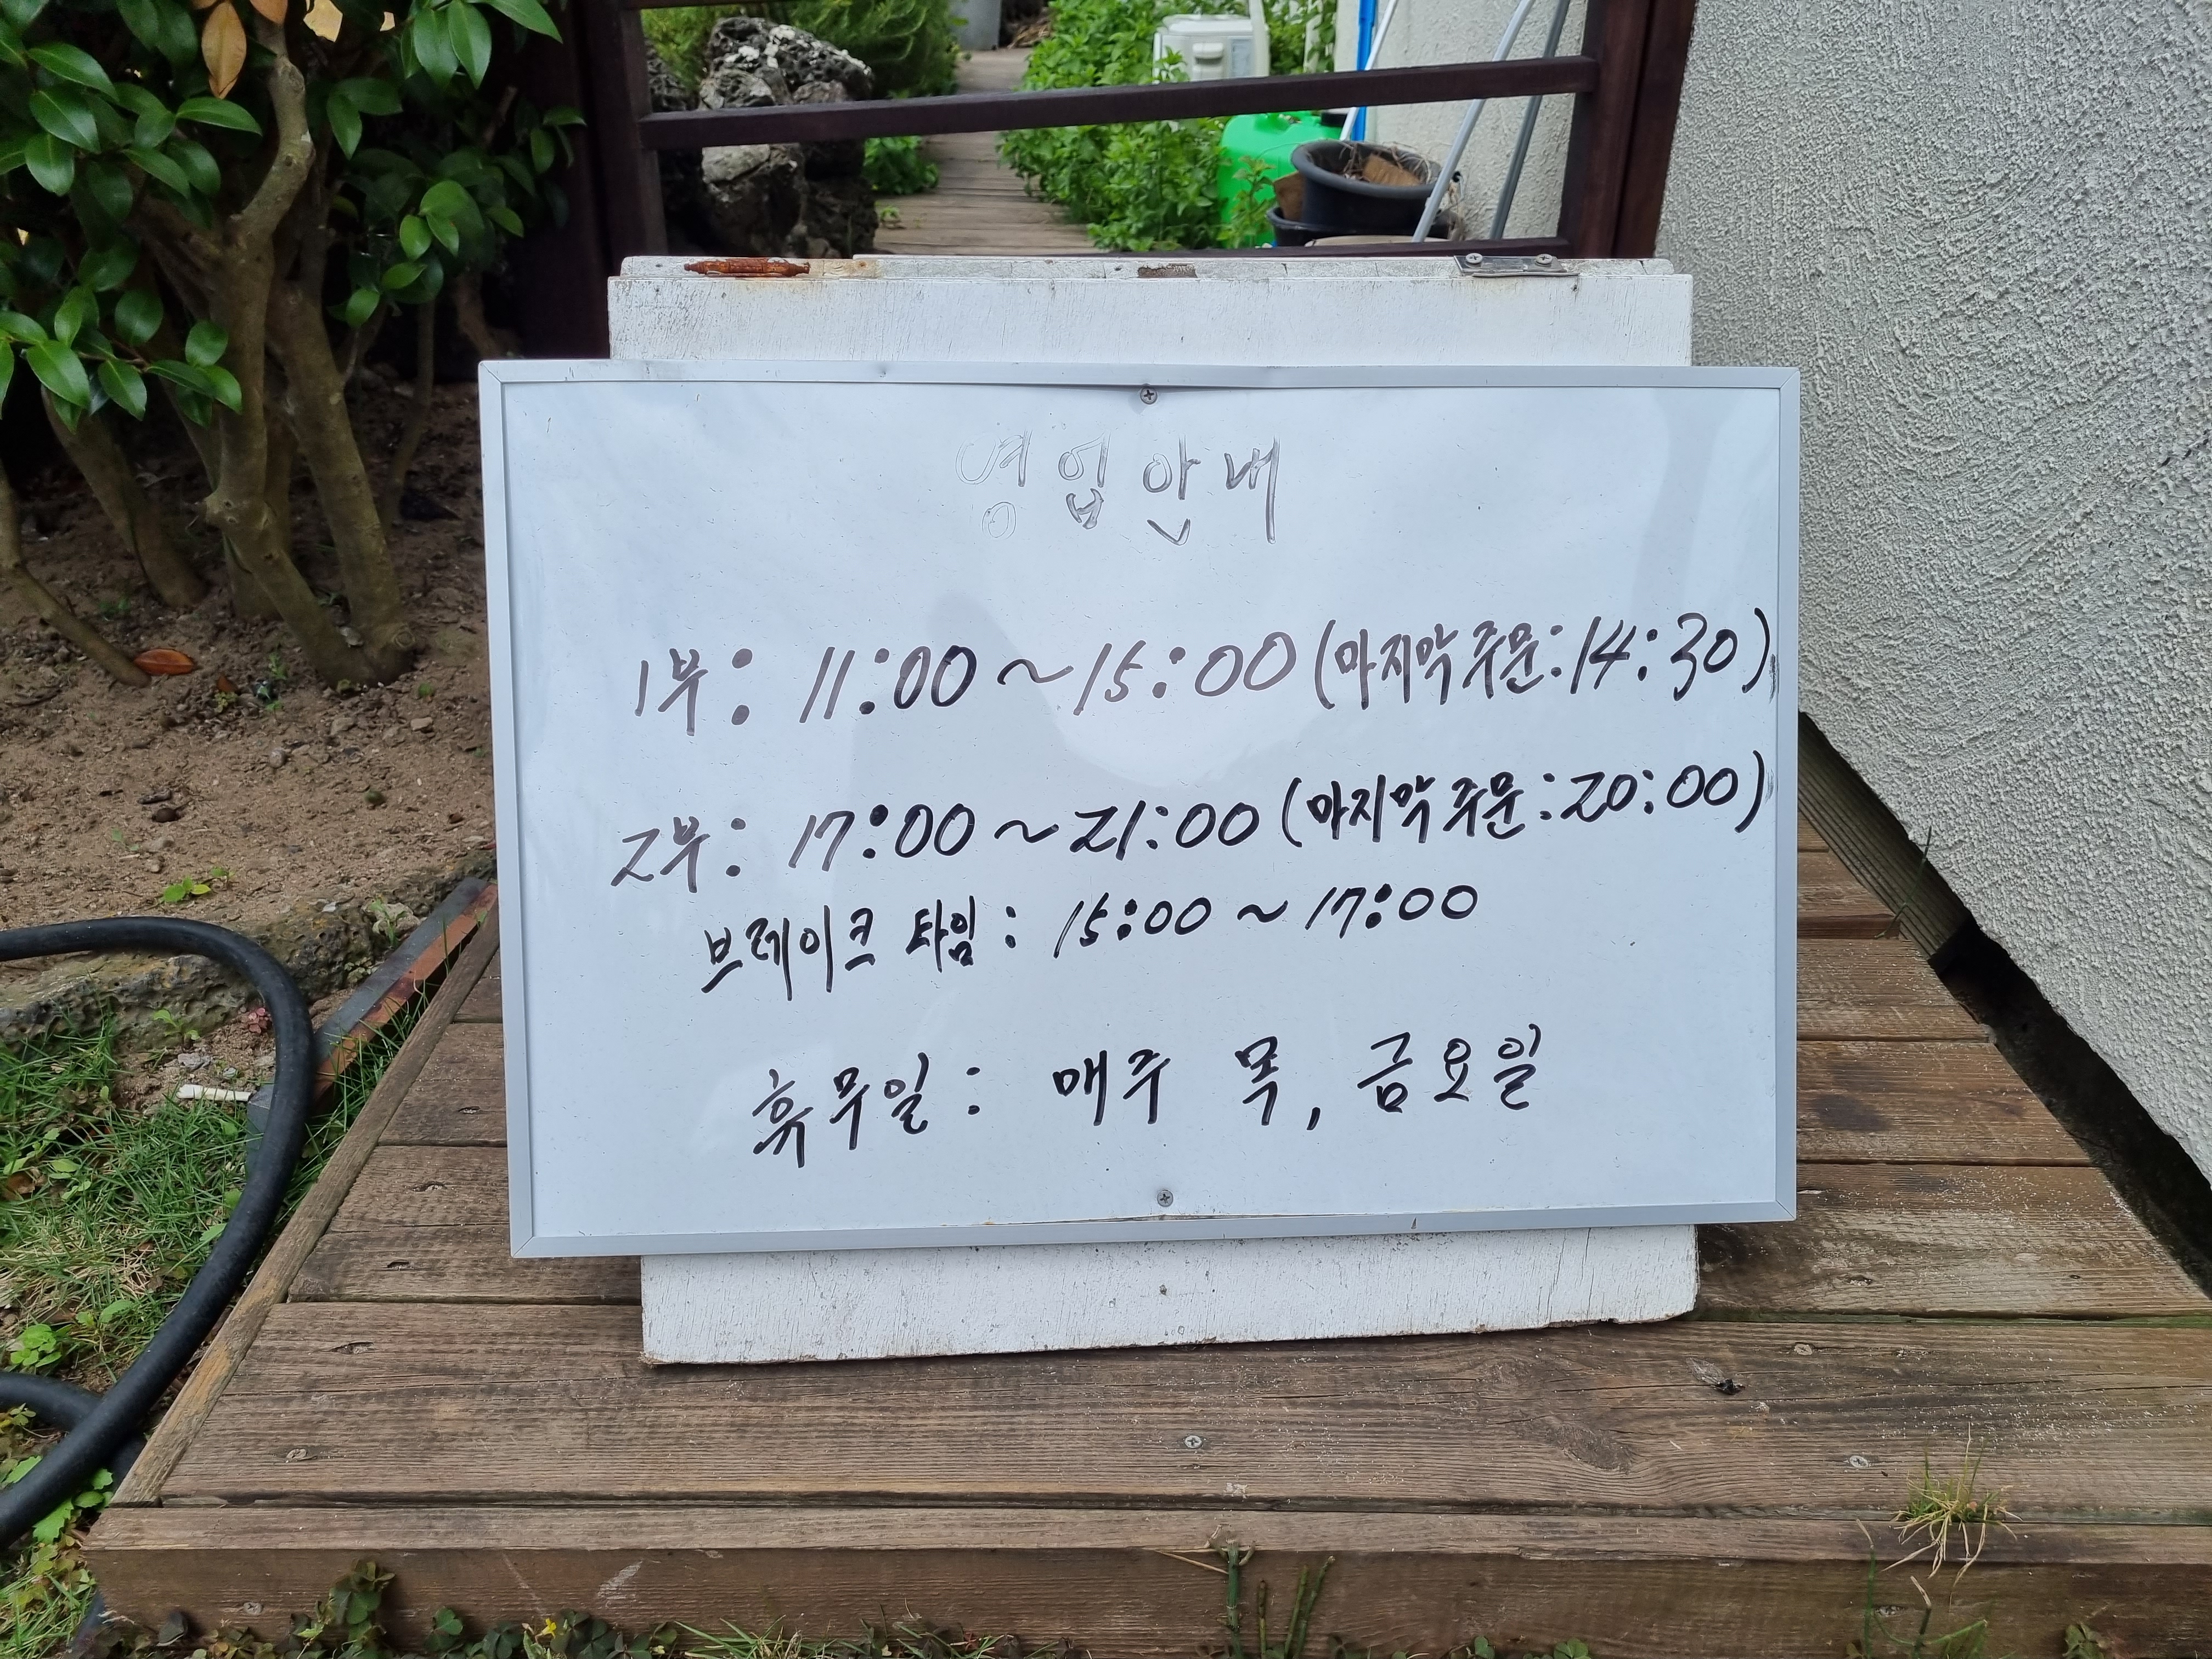 영업안내
1부: 11:00 ~ 15:00 (마지막 주문: 14:30)
2부: 17:00 ~ 21:00 (마지막 주문: 20:00)
브레이크 타임: 15:00 ~ 17:00
휴무일: 매주 목, 금요일